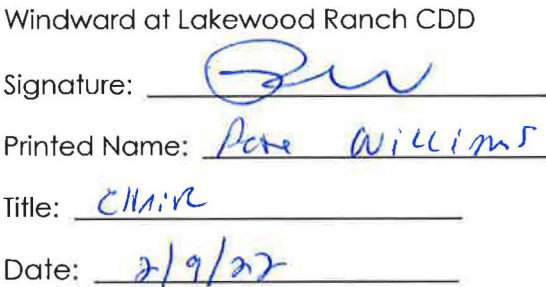 Windward at Lakewood Ranch CDD
Signature:
Printed Name: Pete Williams
Title: Chair
Date: 2/9/22